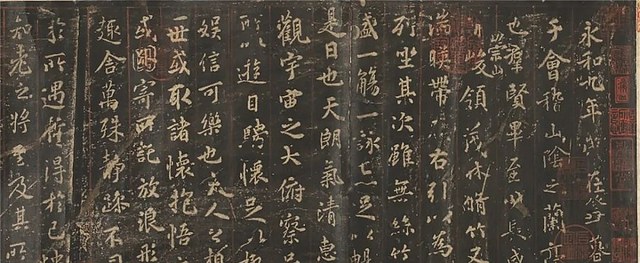 永和九年歲在癸丑暮
于會稽山陰之蘭亭
也群賢畢至少長咸
崇山
峻領茂林脩竹又
湍暎帶左右引以為
列坐其次雖無絲竹
盛一觴一詠亦足以暢
是日也天朗氣清惠
觀宇宙之大俯察品
所以遊目騁懷足以極
娛信可樂也夫人之相
世或取諸懷抱悟
或因寄所託放浪形
趣舍萬殊靜躁不同
於所遇蹔得於己快
知老之將至及其所